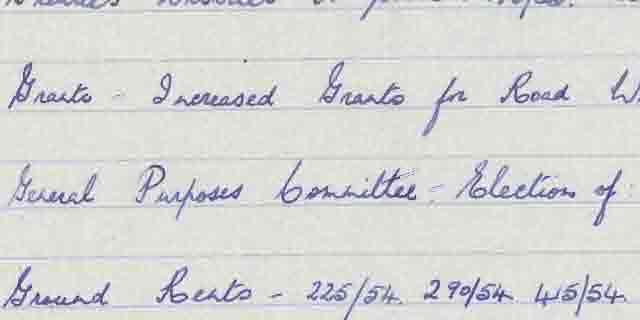 Grants - Increased Grants for Road
General Purposes Committee - Election of
Ground Rents - 225/54. 290/54 45/54